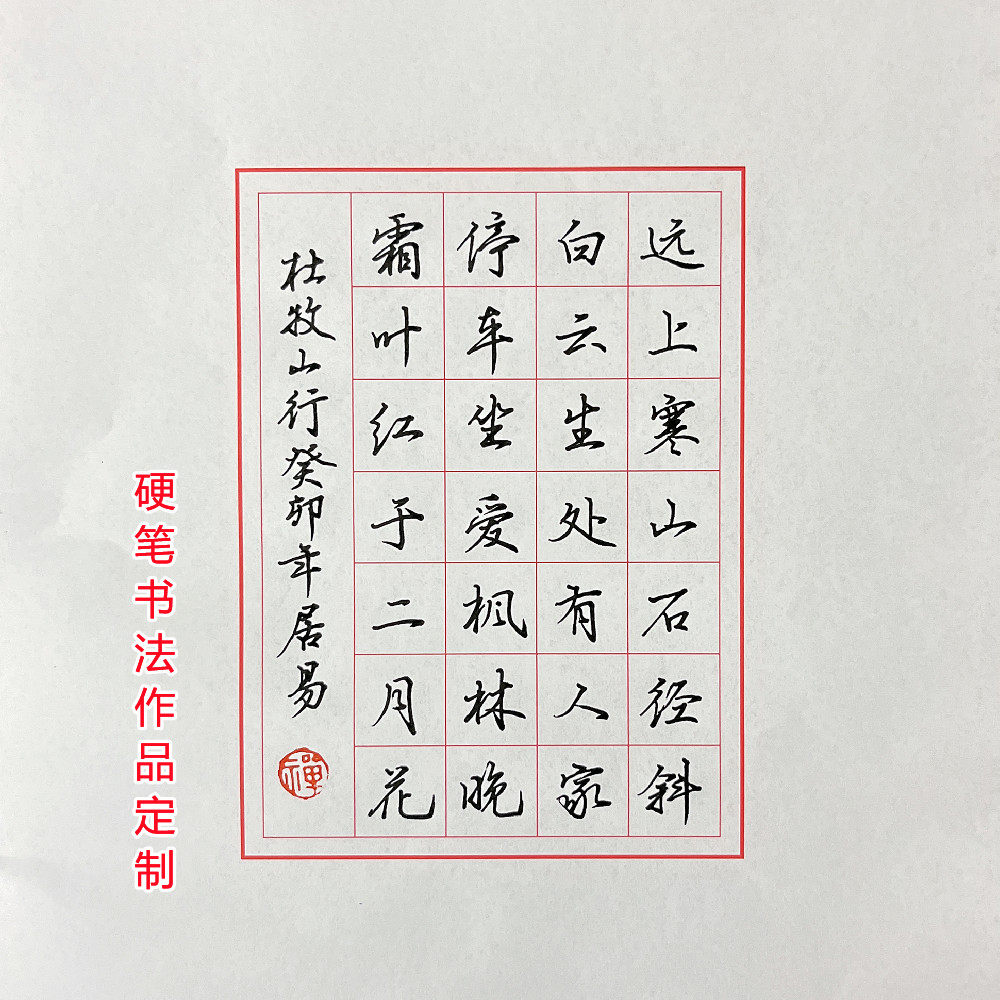 远上寒山石径斜
白云生处有人家
停车坐爱枫林晚
霜叶红于二月花
杜牧山行癸卯年居易
禅
硬笔书法作品定制